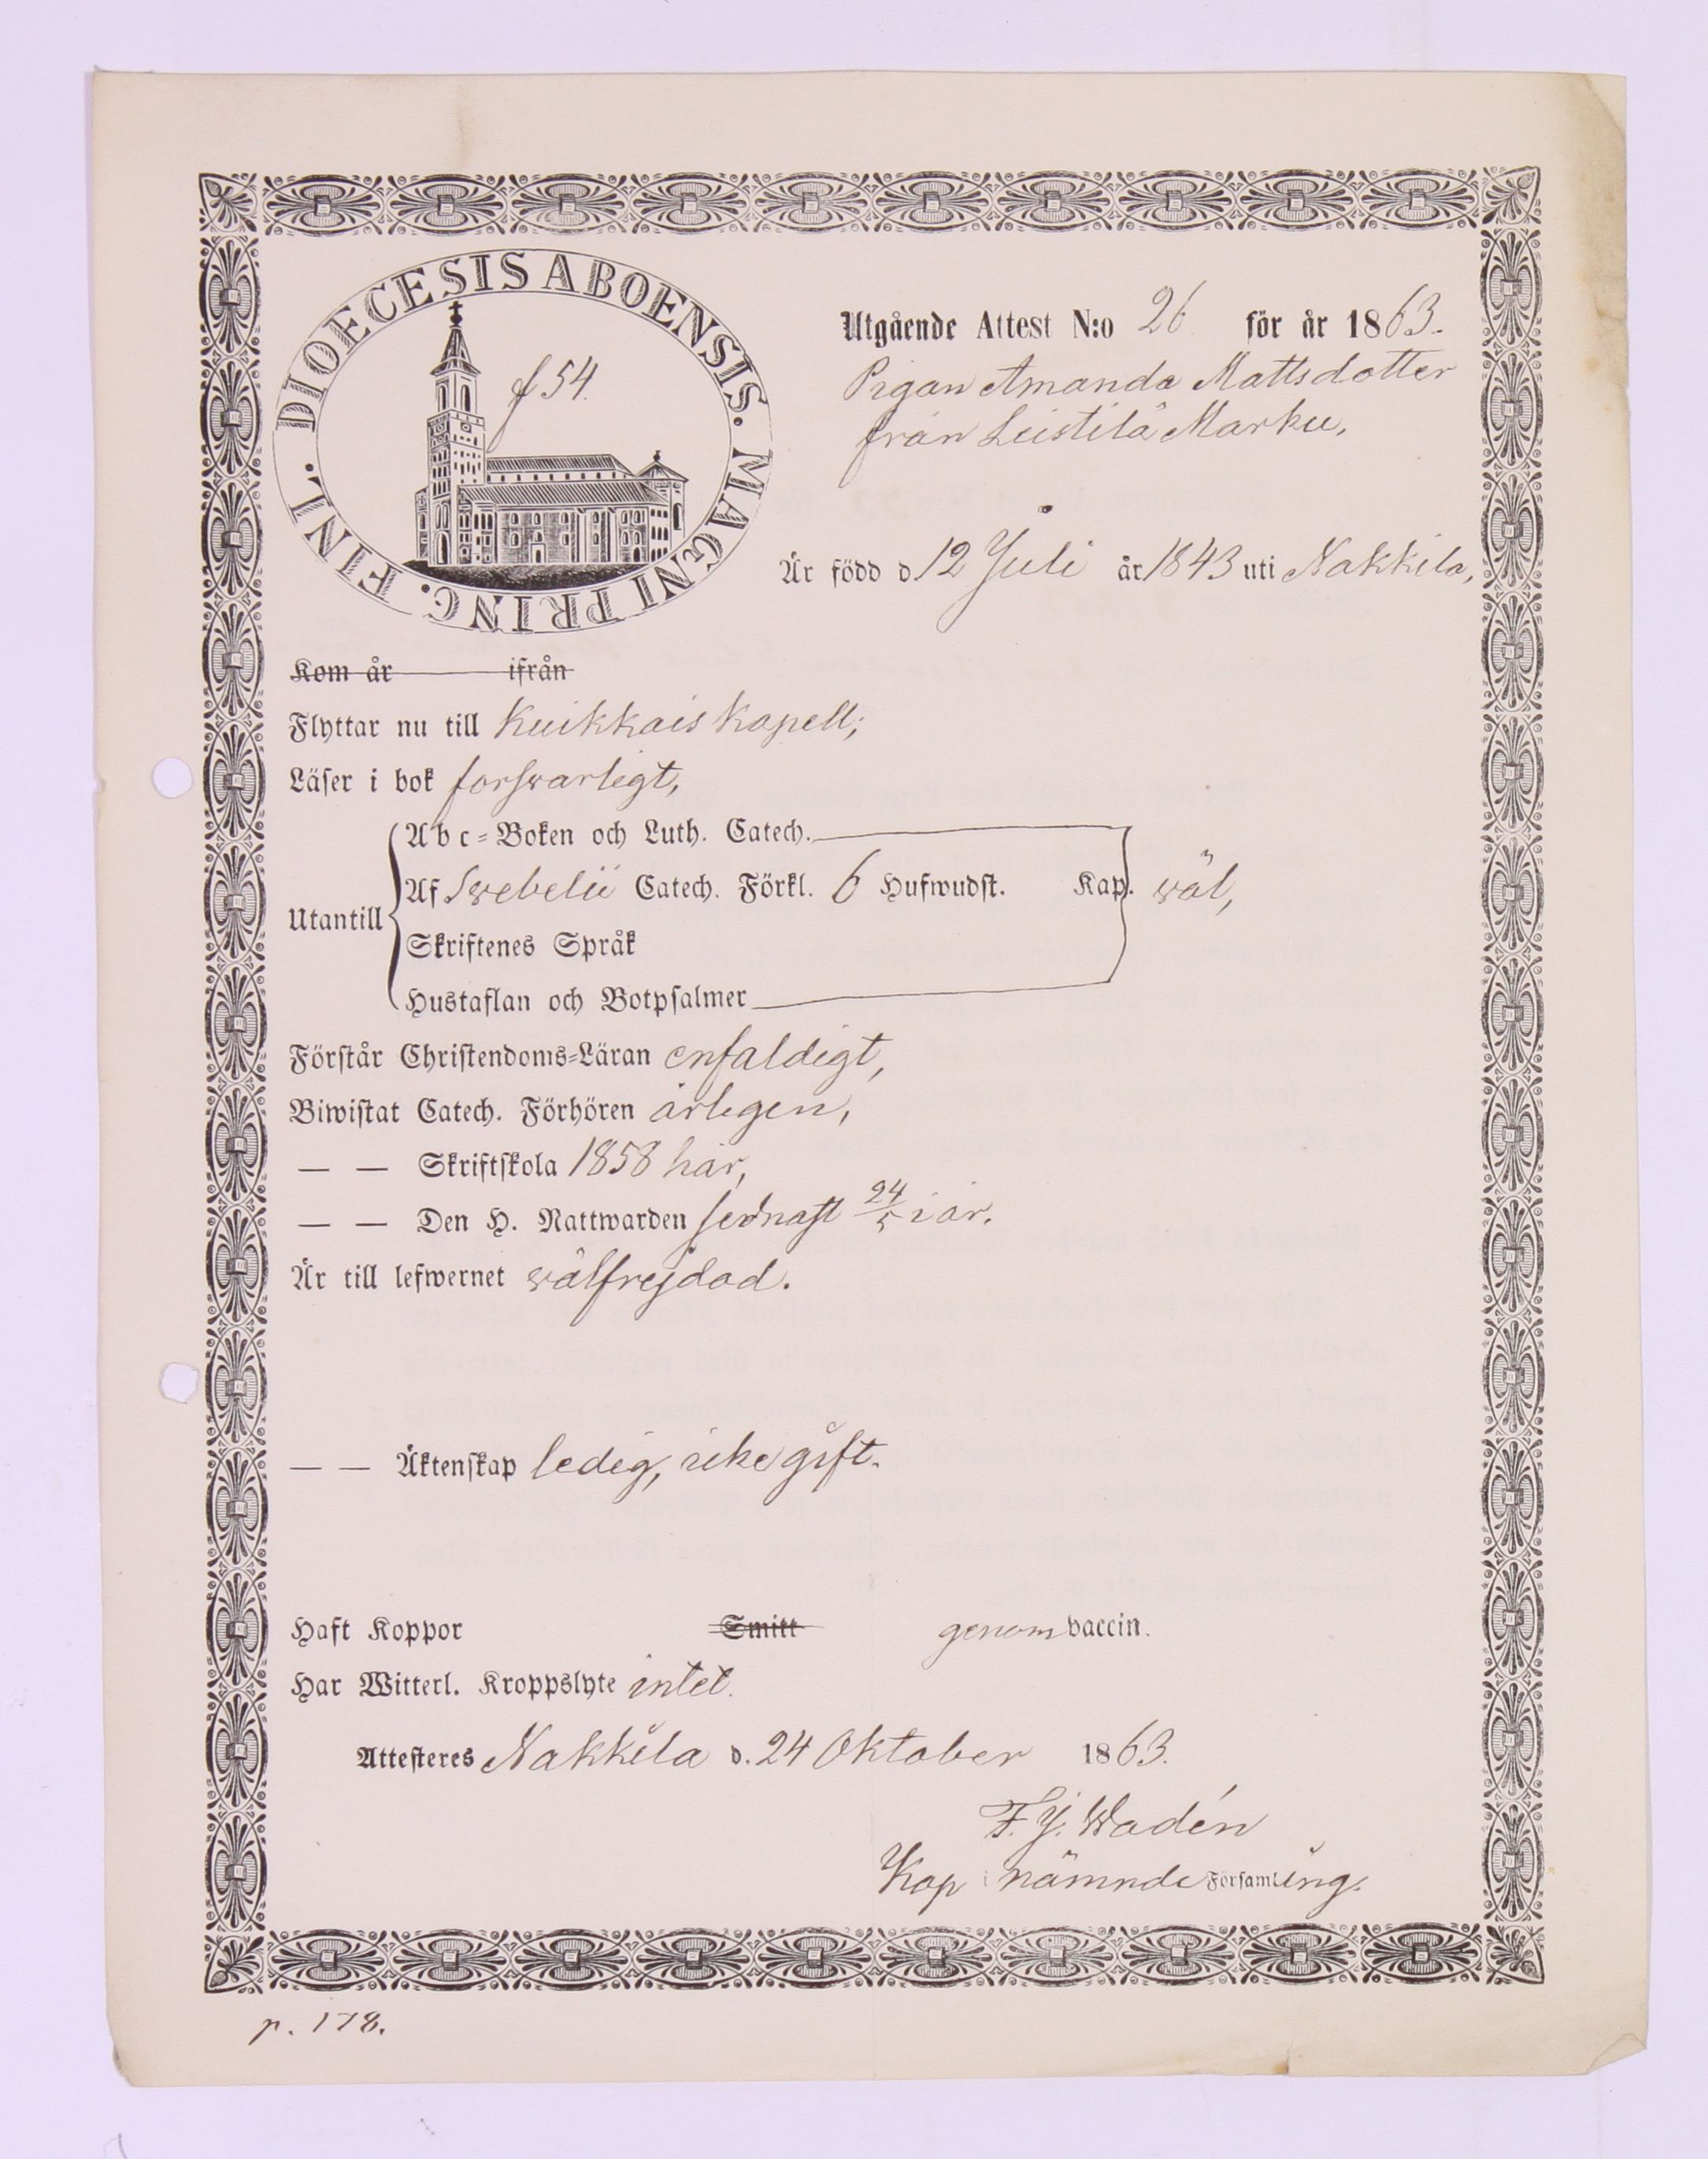 DIOECESIS ABOENSIS. MAGNI PRINC. FINL.
f 54.
Utgående Attest N:o 26 för år 1863.
Pigan Amanda Mattsdotter
från Leistilä Marku,
Är född d 12 Juli år 1843 uti Nakkila,
Kom år ifrån
Flyttar nu till Kuikkais Kapell;
Läser i bok forswarligt,
Abc-Boken och Luth. Catech.
Utantill Af Swebelii Catech. Förkl. 6 Hufwudst. Kap. wäl,
Skriftenes Språk
Hustaflan och Botpsalmer
Förstår Christendoms-Läran enfaldigt,
Biwistat Catech. Förhören årligen,
— — Skriftskola 1858 här,
— — Den H. Nattwarden sednast 24/5 i år.
Är till lefwernet wälfrejdad.
— — Äktenskap ledig, icke gift.
Haft Koppor Smitt genom vaccin.
Har Witterl. Kroppslyte intet.
Attesteres Nakkila d. 24 Oktober 1863.
F. J. Wadén
Kap i nämnde Församling.
p. 178.